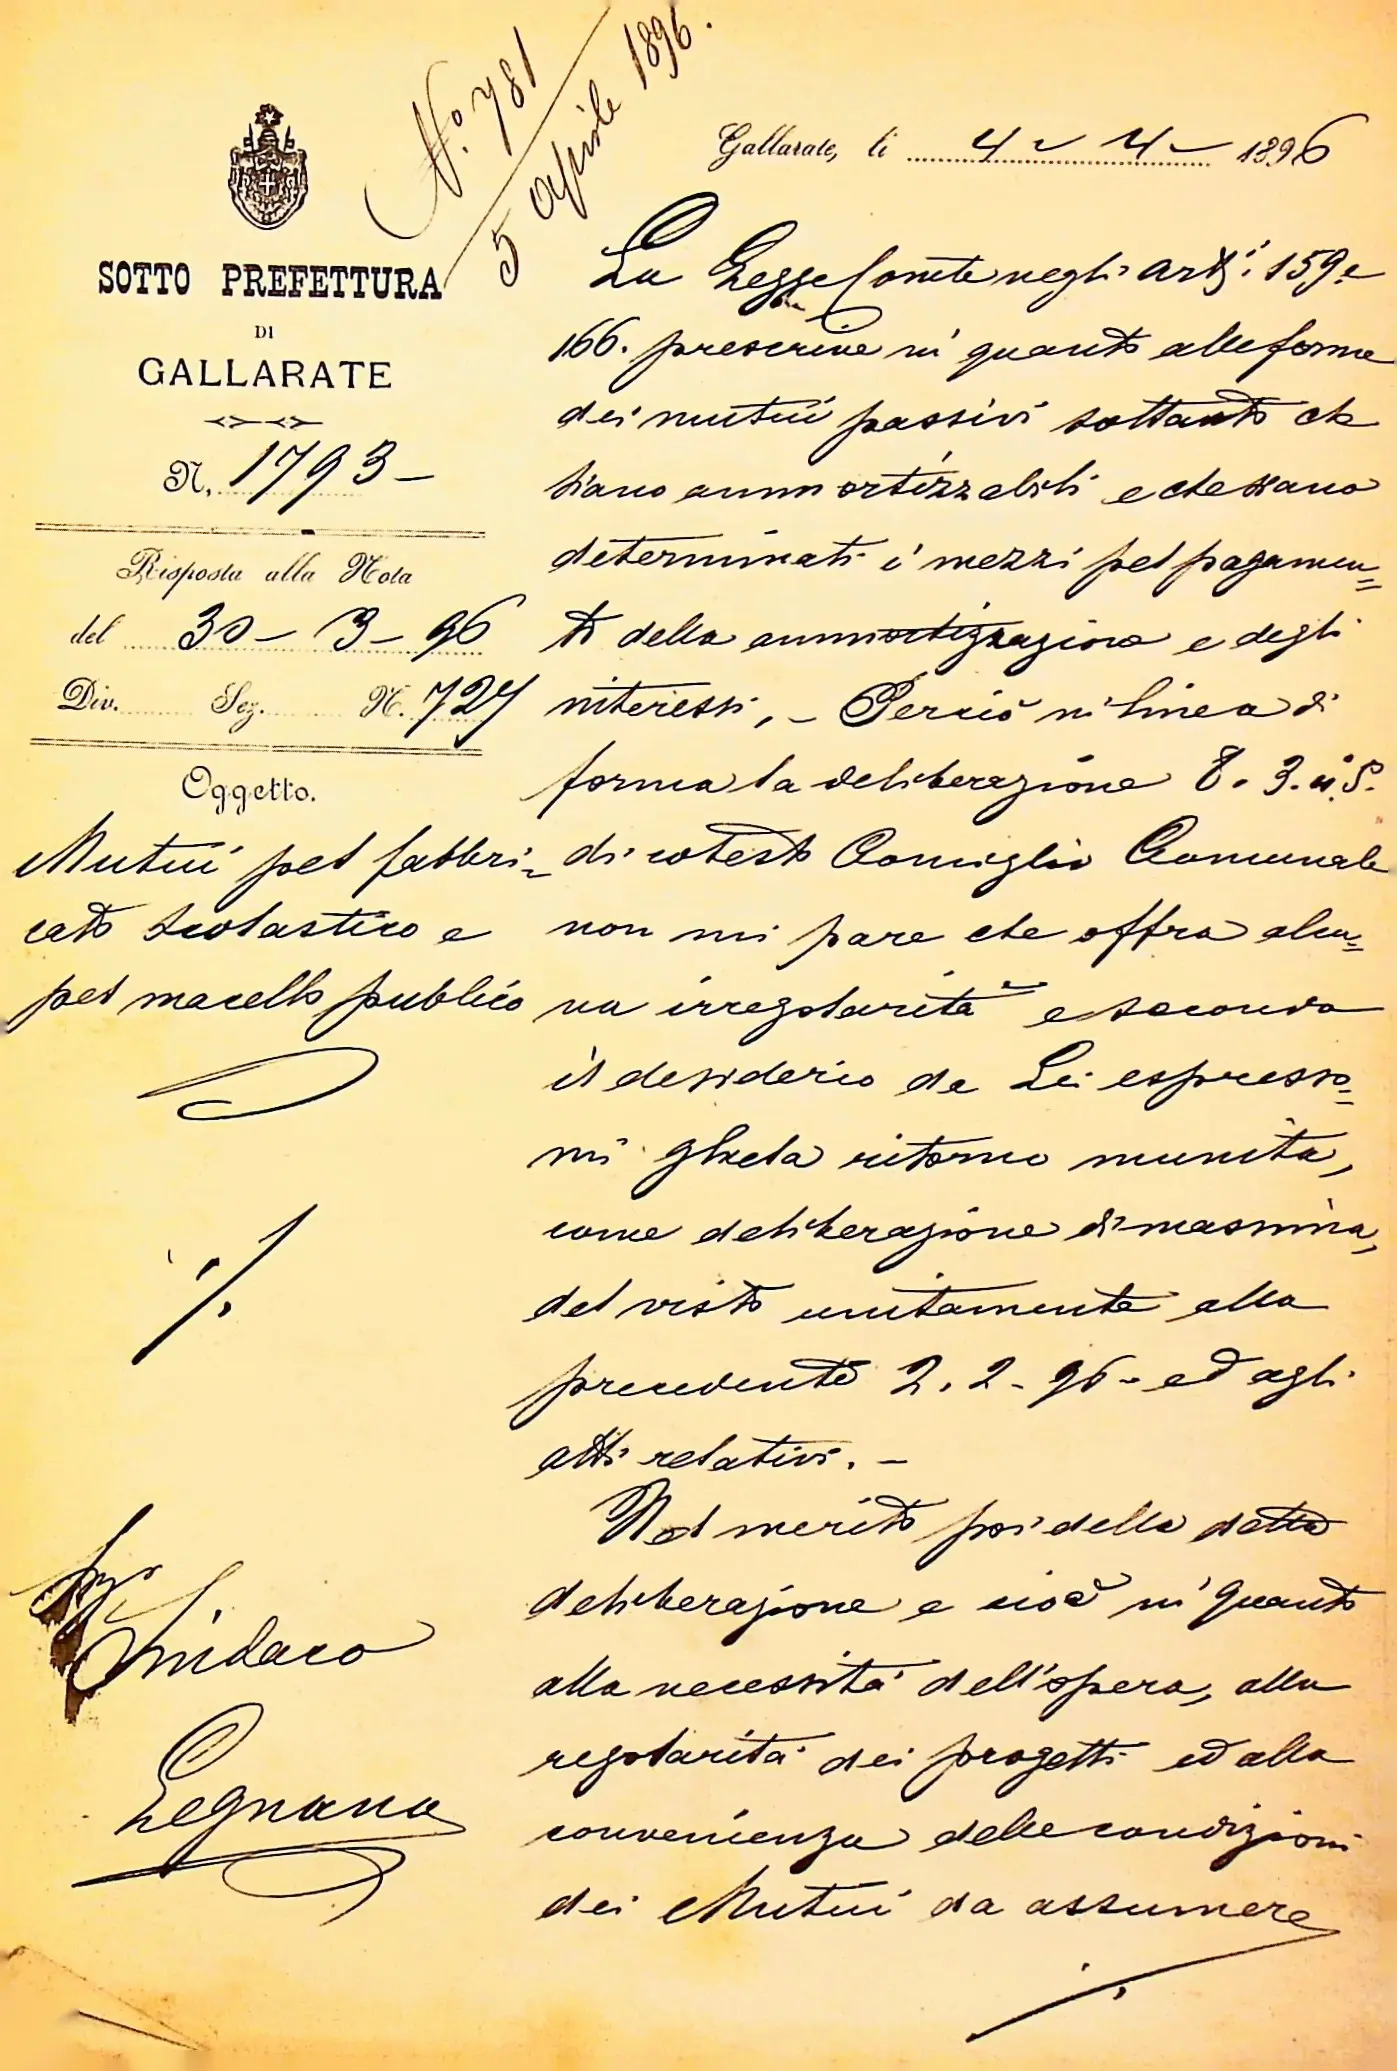 N.° 781
5 aprile 1896.
SOTTO PREFETTURA
DI
GALLARATE
N. 1793 -
Risposta alla Nota
del 30 - 3 - 96
Div. Sez. N. 727
Oggetto.
Mutui pel fabbri-
cato scolastico e
pel macello publico
Sigr
Sindaco
Legnano
Gallarate, li 4 - 4 - 1896
La Legge Comle negli arti. 159 e
166. prescrive in quanto alle forme
dei mutui passivi soltanto che
siano ammortizzabili e che siano
determinati i mezzi pel pagamen=
to della ammortizzazione e degli
interessi, - Perciò in linea di
forma la deliberazione 8. 3. u. s.
di cotesto Consiglio Comunale
non mi pare che offra alcu=
na irregolarità e secondo
il desiderio da Lei espresso=
mi gliela ritorno munita,
come deliberazione di massima,
del visto unitamente alla
precedente 2. 2 - 96 - ed agli
atti relativi. -
Nel merito poi della detta
deliberazione e cioè in quanto
alla necessità dell'opera, alla
regolarità dei progetti ed alla
convenienza delle condizioni
dei Mutui da assumere